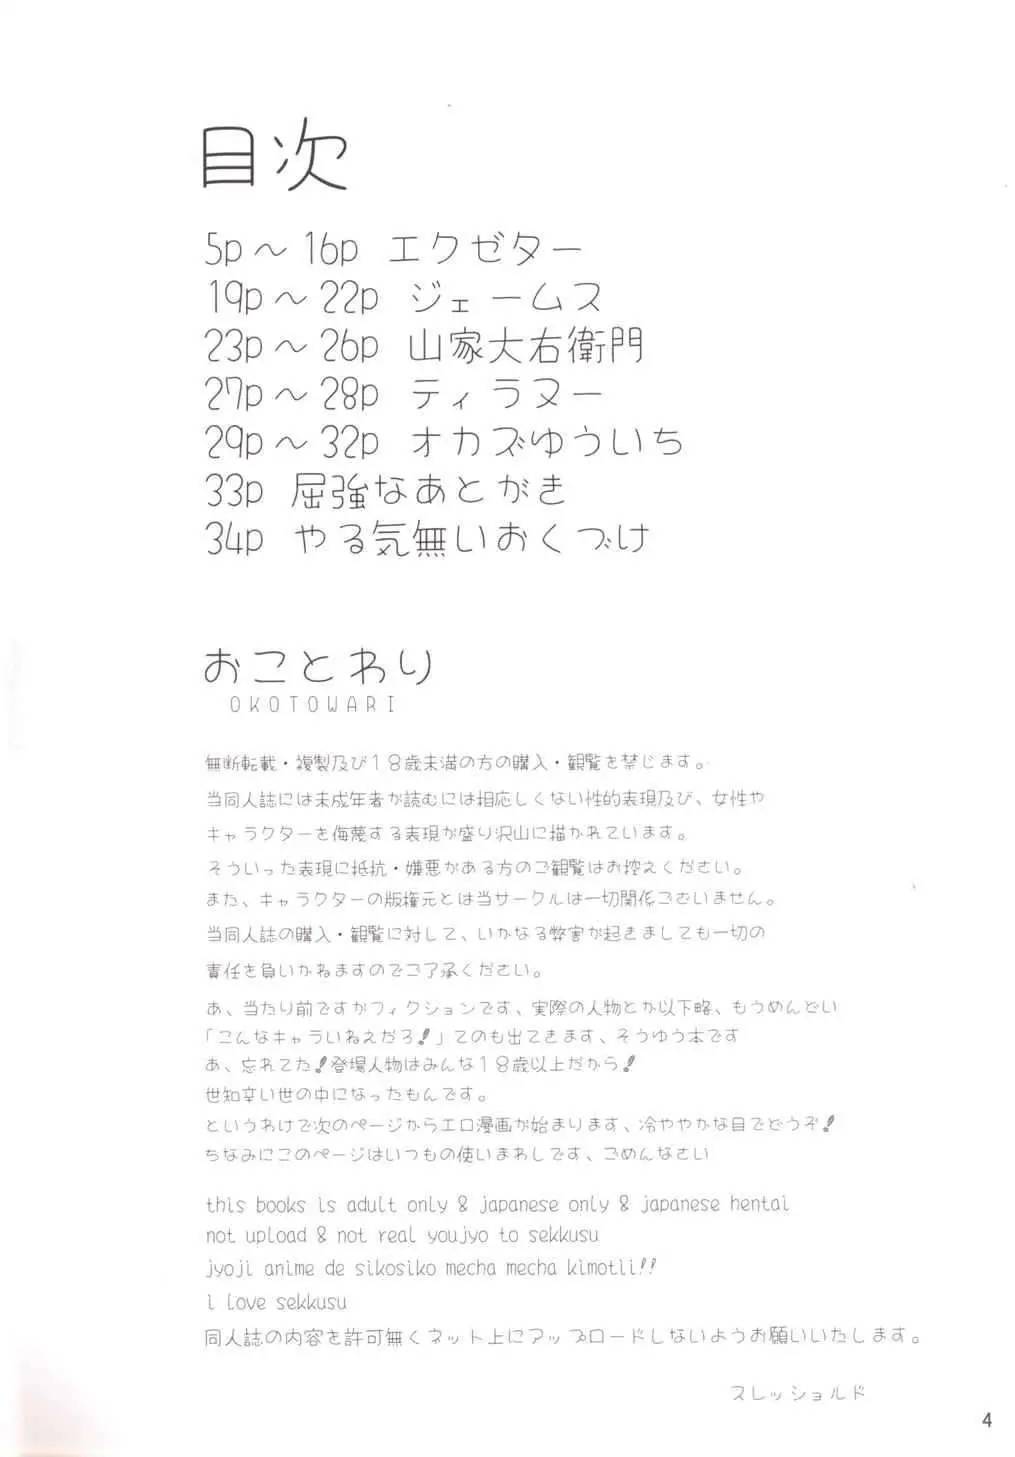 目次
5p～16p エクゼター
19p～22p ジェームス
23p～26p 山家大右衛門
27p～28p ティラヌー
29p～32p オカズゆういち
33p 屈強なあとがき
34p やる気無いおくづけ
おことわり
OKOTOWARI
無断転載・複製及び１８歳未満の方の購入・観覧を禁じます。
当同人誌には未成年者が読むには相応しくない性的表現及び、女性や
キャラクターを侮蔑する表現が盛り沢山に描かれています。
そういった表現に抵抗・嫌悪がある方のご観覧はお控えください。
また、キャラクターの版権元とは当サークルは一切関係ございません。
当同人誌の購入・観覧に対して、いかなる弊害が起きましても一切の
責任を負いかねますのでご了承ください。
あ、当たり前ですがフィクションです、実際の人物とか以下略、もうめんどい
「こんなキャラいねえだろ！」てのも出てきます、そうゆう本です
あ、忘れてた！登場人物はみんな１８歳以上だから！
世知辛い世の中になったもんです。
というわけで次のページからエロ漫画が始まります、冷ややかな目でどうぞ！
ちなみにこのページはいつもの使いまわしです、ごめんなさい
this books is adult only & japanese only & japanese hentai
not upload
i love sekkusu
同人誌の内容を許可無くネット上にアップロードしないようお願いいたします。
スレッショルド
4